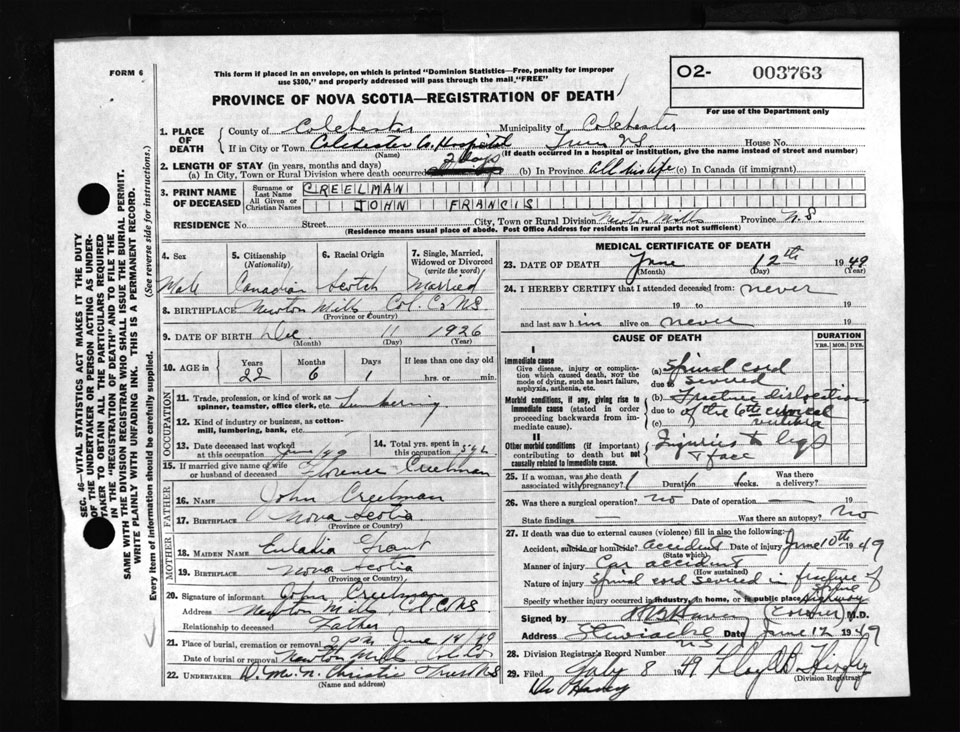 FORM 6
This form if placed in an envelope, on which is printed "Dominion Statistics—Free, penalty for improper
use $300," and properly addressed will pass through the mail "FREE"
O2- 003763
For use of the Department only
PROVINCE OF NOVA SCOTIA—REGISTRATION OF DEATH
1. PLACE OF DEATH
County of Colchester Municipality of Colchester
If in City or Town Colchester Co. Hospital Truro N.S. House No.
(Name) (If death occurred in a hospital or institution, give the name instead of street and number)
2. LENGTH OF STAY (in years, months and days) 2 days
(a) In City, Town or Rural Division where death occurred (b) In Province all his life (c) In Canada (if immigrant)
3. PRINT NAME OF DECEASED
Surname or Last Name CREELMAN
All Given or Christian Names JOHN FRANCIS
RESIDENCE No. Street City, Town or Rural Division Newton Mills Province N.S
(Residence means usual place of abode. Post Office Address for residents in rural parts not sufficient)
4. Sex 5. Citizenship (Nationality) 6. Racial Origin 7. Single, Married, Widowed or Divorced (write the word)
Male Canadian Scotch Married
8. BIRTHPLACE Newton Mills Col. Co NS
(Province or Country)
9. DATE OF BIRTH Dec 11 1926
(Month) (Day) (Year)
10. AGE in Years Months Days If less than one day old
22 6 1 hrs. or min.
OCCUPATION
11. Trade, profession, or kind of work as spinner, teamster, office clerk, etc. Lumbering
12. Kind of industry or business, as cotton-mill, lumbering, bank, etc.
13. Date deceased last worked at this occupation June/49
14. Total yrs. spent in this occupation
15. If married give name of wife or husband of deceased Florence Creelman
FATHER
16. NAME John Creelman
17. BIRTHPLACE Nova Scotia
(Province or Country)
MOTHER
18. MAIDEN NAME Euladia Grant
19. BIRTHPLACE Nova Scotia
(Province or Country)
20. Signature of informant John Creelman
Address Newton Mills Col. Co NS
Relationship to deceased Father
21. Place of burial, cremation or removal 2 PM June 14/49
Date of burial or removal Newton Mills Col. Co
22. UNDERTAKER Christie Truro NS
(Name and address)
MEDICAL CERTIFICATE OF DEATH
23. DATE OF DEATH June 12th 1949
(Month) (Day) (Year)
24. I HEREBY CERTIFY that I attended deceased from: never
19 to 19
and last saw him alive on never 19
CAUSE OF DEATH DURATION
YRS. MOS. DYS.
I
Immediate cause
Give disease, injury or complication which caused death, NOT the mode of dying, such as heart failure, asphyxia, asthenia, etc.
(a) Spinal cord
due to severed
Morbid conditions, if any, giving rise to immediate cause (stated in order proceeding backwards from immediate cause).
(b) Fracture dislocation
due to of the 6th cervical
(c) vertebra
II
Other morbid conditions (if important) contributing to death but not causally related to immediate cause.
Injuries to legs
+ face
25. If a woman, was the death associated with pregnancy? Duration weeks. Was there a delivery?
26. Was there a surgical operation? no Date of operation — 19
State findings — Was there an autopsy? No
27. If death was due to external causes (violence) fill in also the following:
Accident, suicide or homicide? accident Date of injury June 10th 1949
(State which)
Manner of injury Car accident
(How sustained)
Nature of injury Spinal cord severed in fracture of spine
Specify whether injury occurred in industry, in home, or in public place highway
Signed by (Coroner) M.D.
Address Stewiacke NS Date June 12 1949
28. Division Registrar's Record Number
29. Filed July 8 1949 Lloyd
(Division Registrar)
SEC. 46—VITAL STATISTICS ACT MAKES IT THE DUTY
OF THE UNDERTAKER OR PERSON ACTING AS UNDER-
TAKER TO OBTAIN ALL THE PARTICULARS REQUIRED
IN THE "REGISTRATION OF DEATH" AND TO FILE THE
SAME WITH THE DIVISION REGISTRAR WHO SHALL ISSUE THE BURIAL PERMIT.
WRITE PLAINLY WITH UNFADING INK. THIS IS A PERMANENT RECORD.
Every item of information should be carefully supplied. (See reverse side for instructions.)